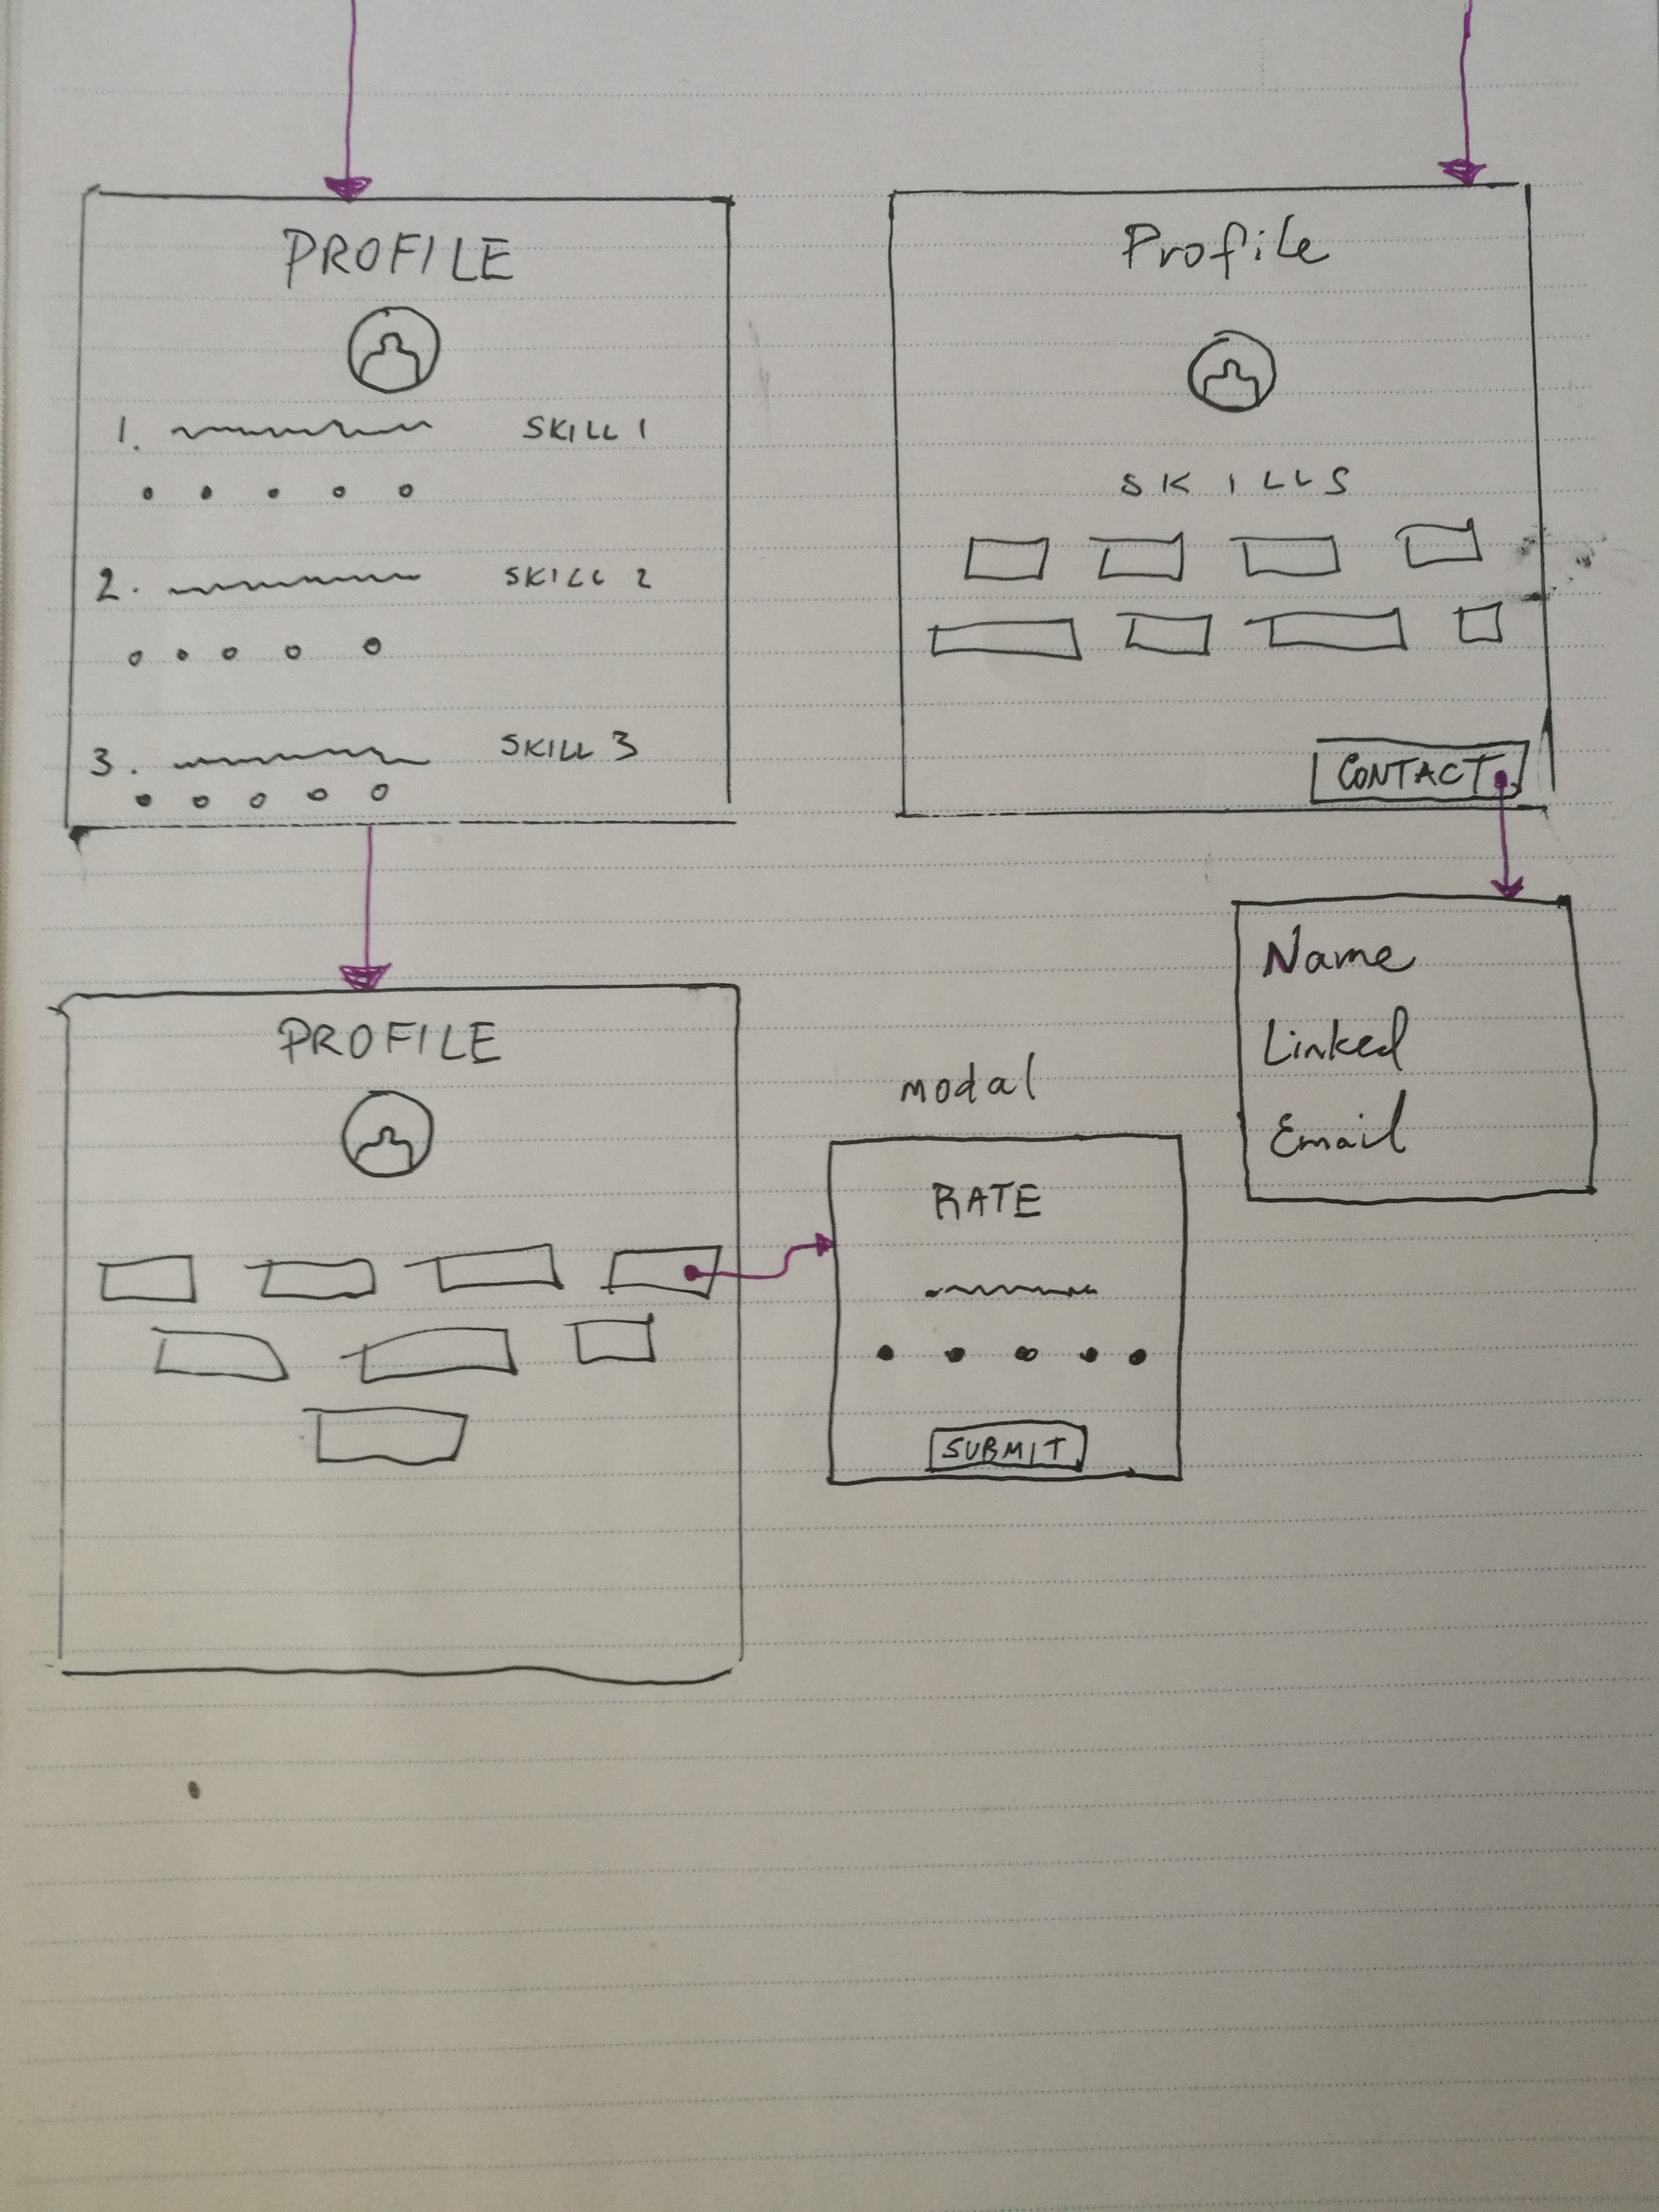 PROFILE
1. SKILL 1
2. SKILL 2
3. SKILL 3
Profile
SKILLS
CONTACT
Name
Linked
Email
PROFILE
modal
RATE
SUBMIT